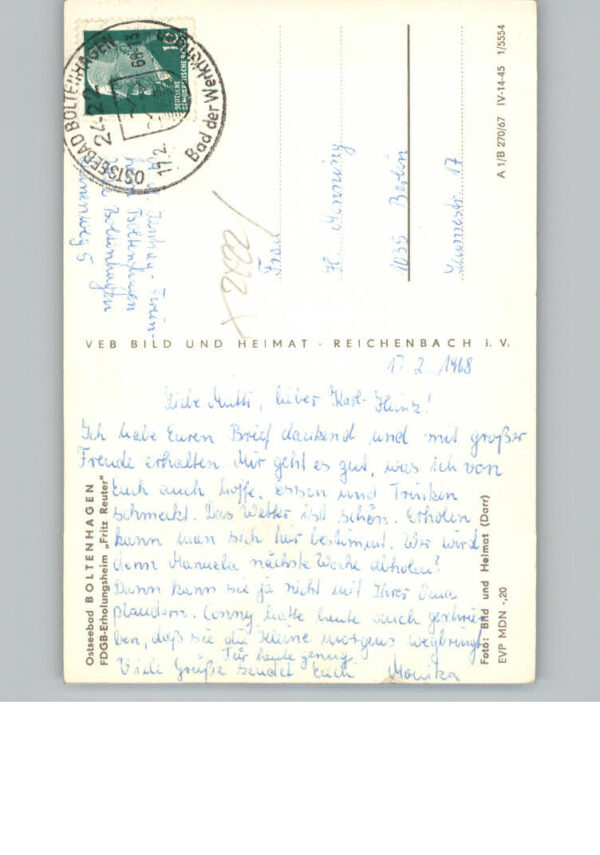 OSTSEEBAD BOLTENHAGEN
Bad der Werktätigen
17.2.
68-13
24-22
10
DEUTSCHE
DEMOKRATISCHE
Boltenhagen
Frau
H. Henning
1035 Berlin
17
A 1/B 270/67 IV-14-45 1/5554
VEB BILD UND HEIMAT · REICHENBACH i. V.
17. 2. 1968
Liebe Mutti, lieber Karl-Heinz!
Ich habe Euren Brief dankend und mit großer
Freude erhalten. Mir geht es gut, was ich von
Euch auch hoffe. Essen und Trinken
schmeckt. Das Wetter ist schön. Erholen
kann man sich hier bestimmt. Wer wird
denn Manuela nächste Woche abholen?
Dann kann sie ja nicht mit Ihrer Oma
plaudern. Conny hatte heute auch geschrie-
ben, daß sie die Kleine morgens wegbringt.
Für heute genug
Viele Grüße sendet Euch Monika
Ostseebad BOLTENHAGEN
FDGB-Erholungsheim „Fritz Reuter"
Foto: Bild und Heimat (Darr)
EVP MDN -,20